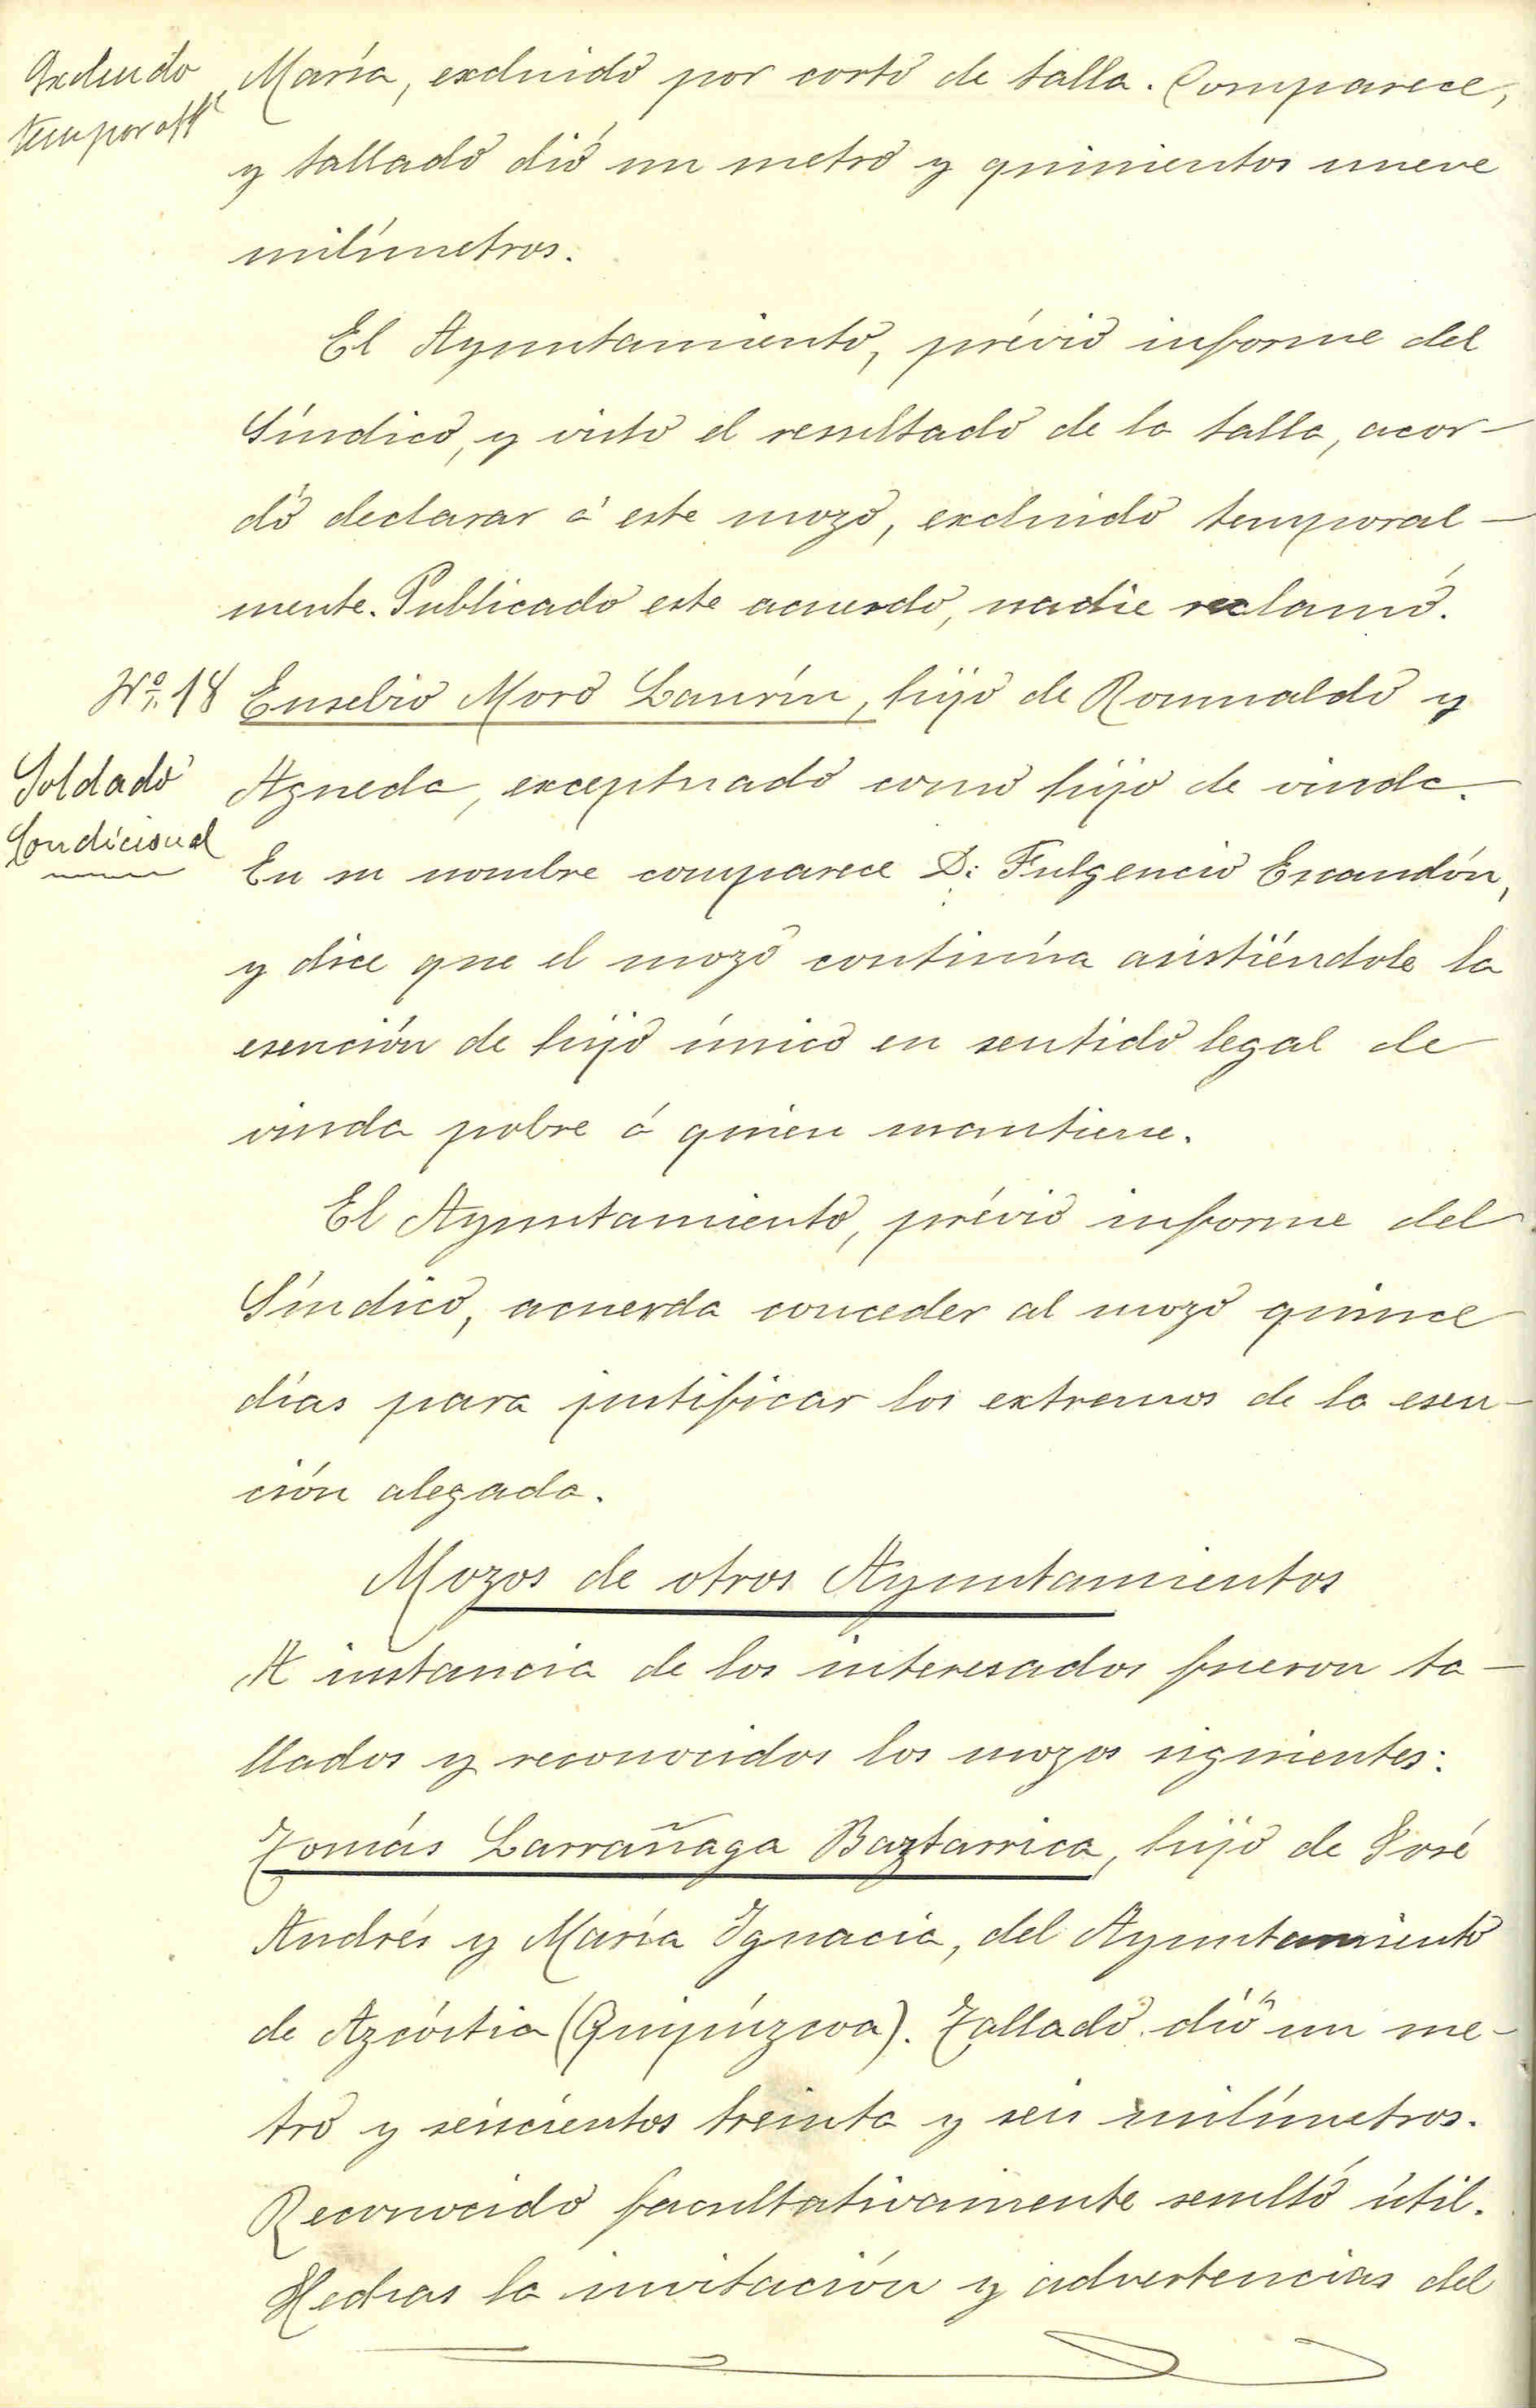 Excluido
temporalte
María, excluido por corto de talla. Comparece,
y tallado dió un metro y quinientos nueve
milímetros.
El Ayuntamiento, prévio informe del
Síndico, y visto el resultado de la talla, acor-
dó declarar á este mozo, excluido temporal-
mente. Publicado este acuerdo, nadie reclamó.
Nº. 18 Eusebio Moro Laurín, hijo de Romualdo y
Soldado
Condicional
Agueda, exceptuado como hijo de viuda.
En su nombre comparece D. Fulgencio Escandón,
y dice que el mozo continúa asistiéndole la
esención de hijo único en sentido legal de
viuda pobre á quien mantiene.
El Ayuntamiento, prévio informe del
Síndico, acuerda conceder al mozo quince
días para justificar los extremos de la esen-
ción alegada.
Mozos de otros Ayuntamientos
A instancia de los interesados fueron ta-
llados y reconocidos los mozos siguientes:
Tomás Larrañaga Baztarrica, hijo de José
Andrés y María Ignacia, del Ayuntamiento
de Azcóitia (Guipúzcoa). Tallado dió un me-
tro y seiscientos treinta y seis milímetros.
Reconocido facultativamente resultó útil.
Hechas la invitación y advertencias del